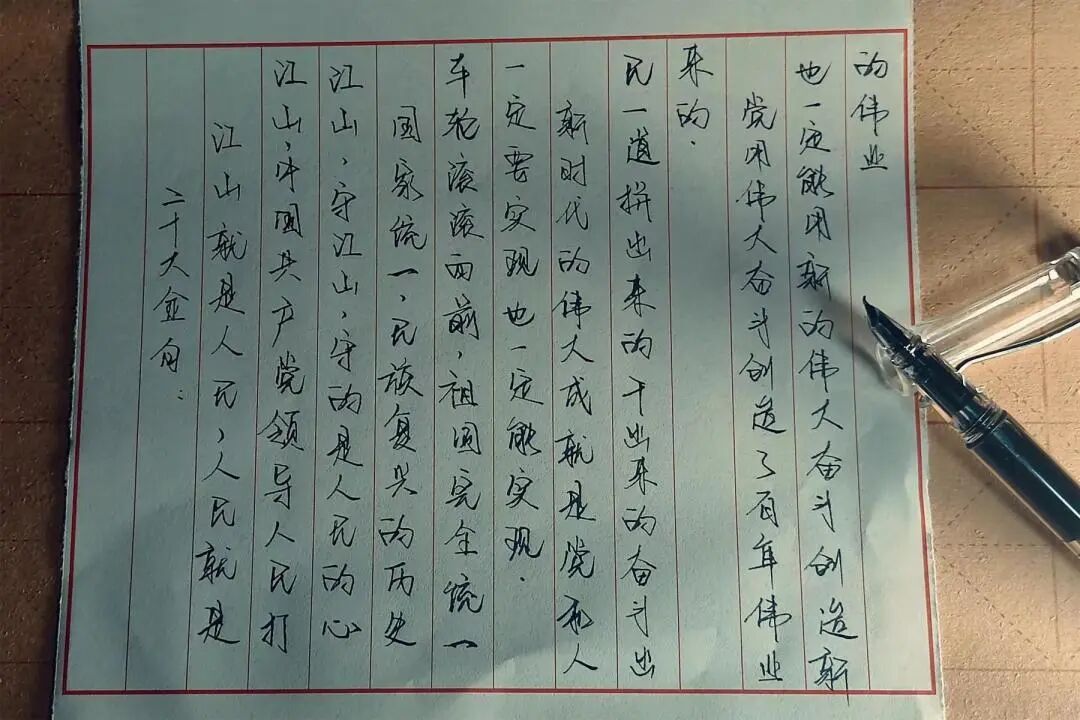 二十大金句：
江山就是人民，人民就是
江山，中国共产党领导人民打
江山，守江山，守的是人民的心
国家统一，民族复兴的历史
车轮滚滚向前，祖国完全统一
一定要实现也一定能实现.
新时代的伟大成就是党和人
民一道拼出来的干出来的奋斗出
来的.
党用伟大奋斗创造了百年伟业
也一定能用新的伟大奋斗创造新
的伟业